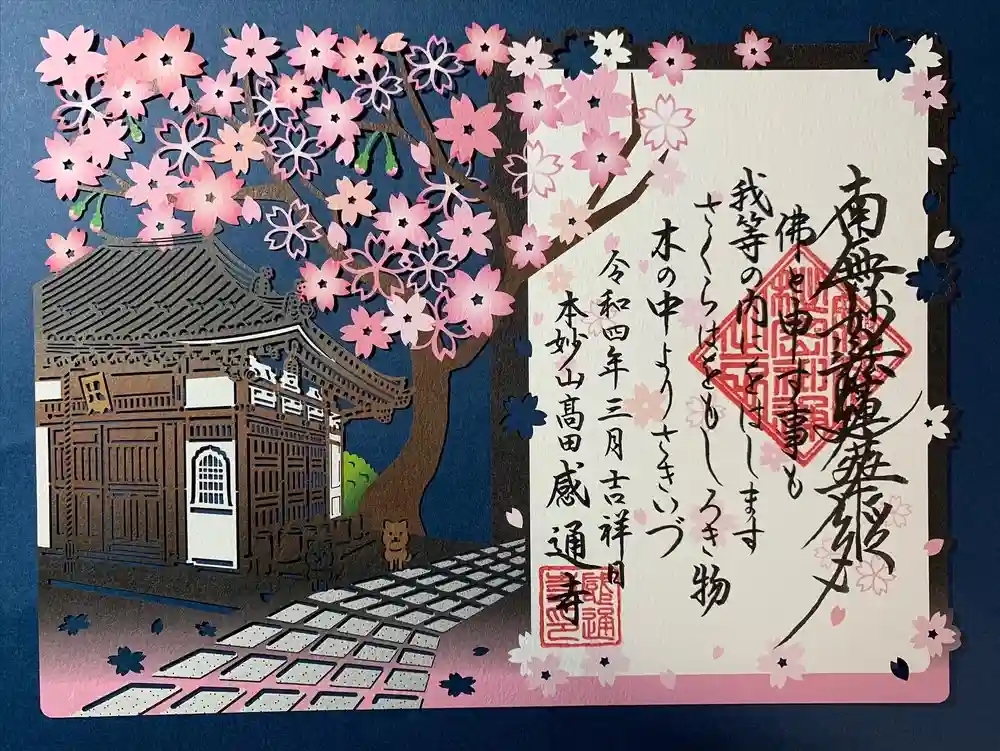 南無妙法蓮華経
佛と申す事も
我等の内にをはします
さくらはをもしろき物
木の中よりさきいづ
令和四年三月吉祥日
本妙山高田感通寺
感通